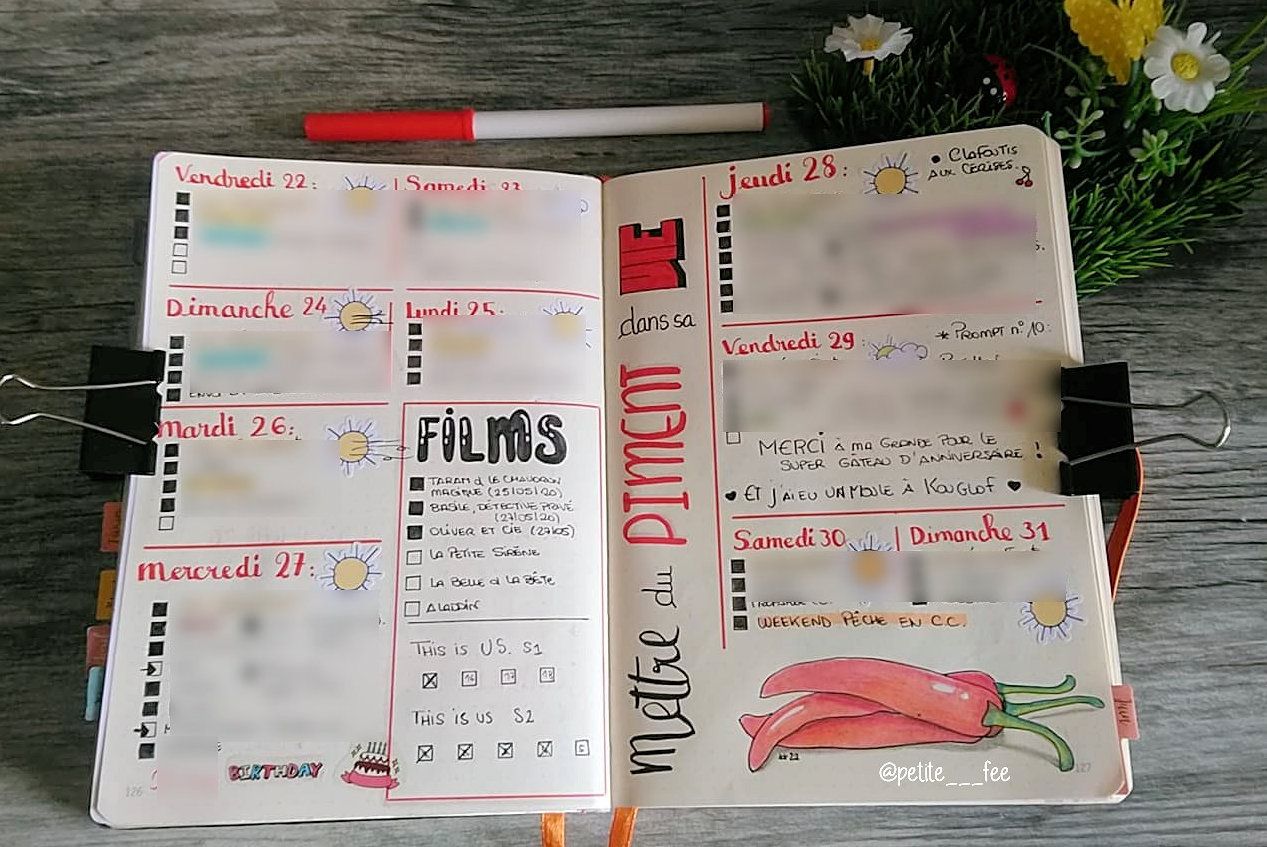 Vendredi 22:
Samedi 23
Dimanche 24
Lundi 25:
Mardi 26:
Mercredi 27:
BIRTHDAY
126
FILMS
TARAM & LE CHAUDRON
MAGIQUE (25/05/20)
BASILE, DÉTECTIVE PRIVÉ
(27/05/20)
OLIVER ET CIE (27/05)
LA PETITE SIRÈNE
LA BELLE & LA BÊTE
ALADDIN
THIS IS US. S1
16 17 18
THIS IS US S2
5
Mettre du PIMENT dans sa VIE
Jeudi 28:
• CLAFOUTIS
AUX CERISES.
Vendredi 29:
* PROMPT N°10:
MERCI À MA GRANDE POUR LE
SUPER GATEAU D'ANNIVERSAIRE !
♥ ET J'AI EU UN MOULE À KOUGLOF ♥
Samedi 30
Dimanche 31
WEEKEND PÊCHE EN C.C.
@petite___fee
127
Juin